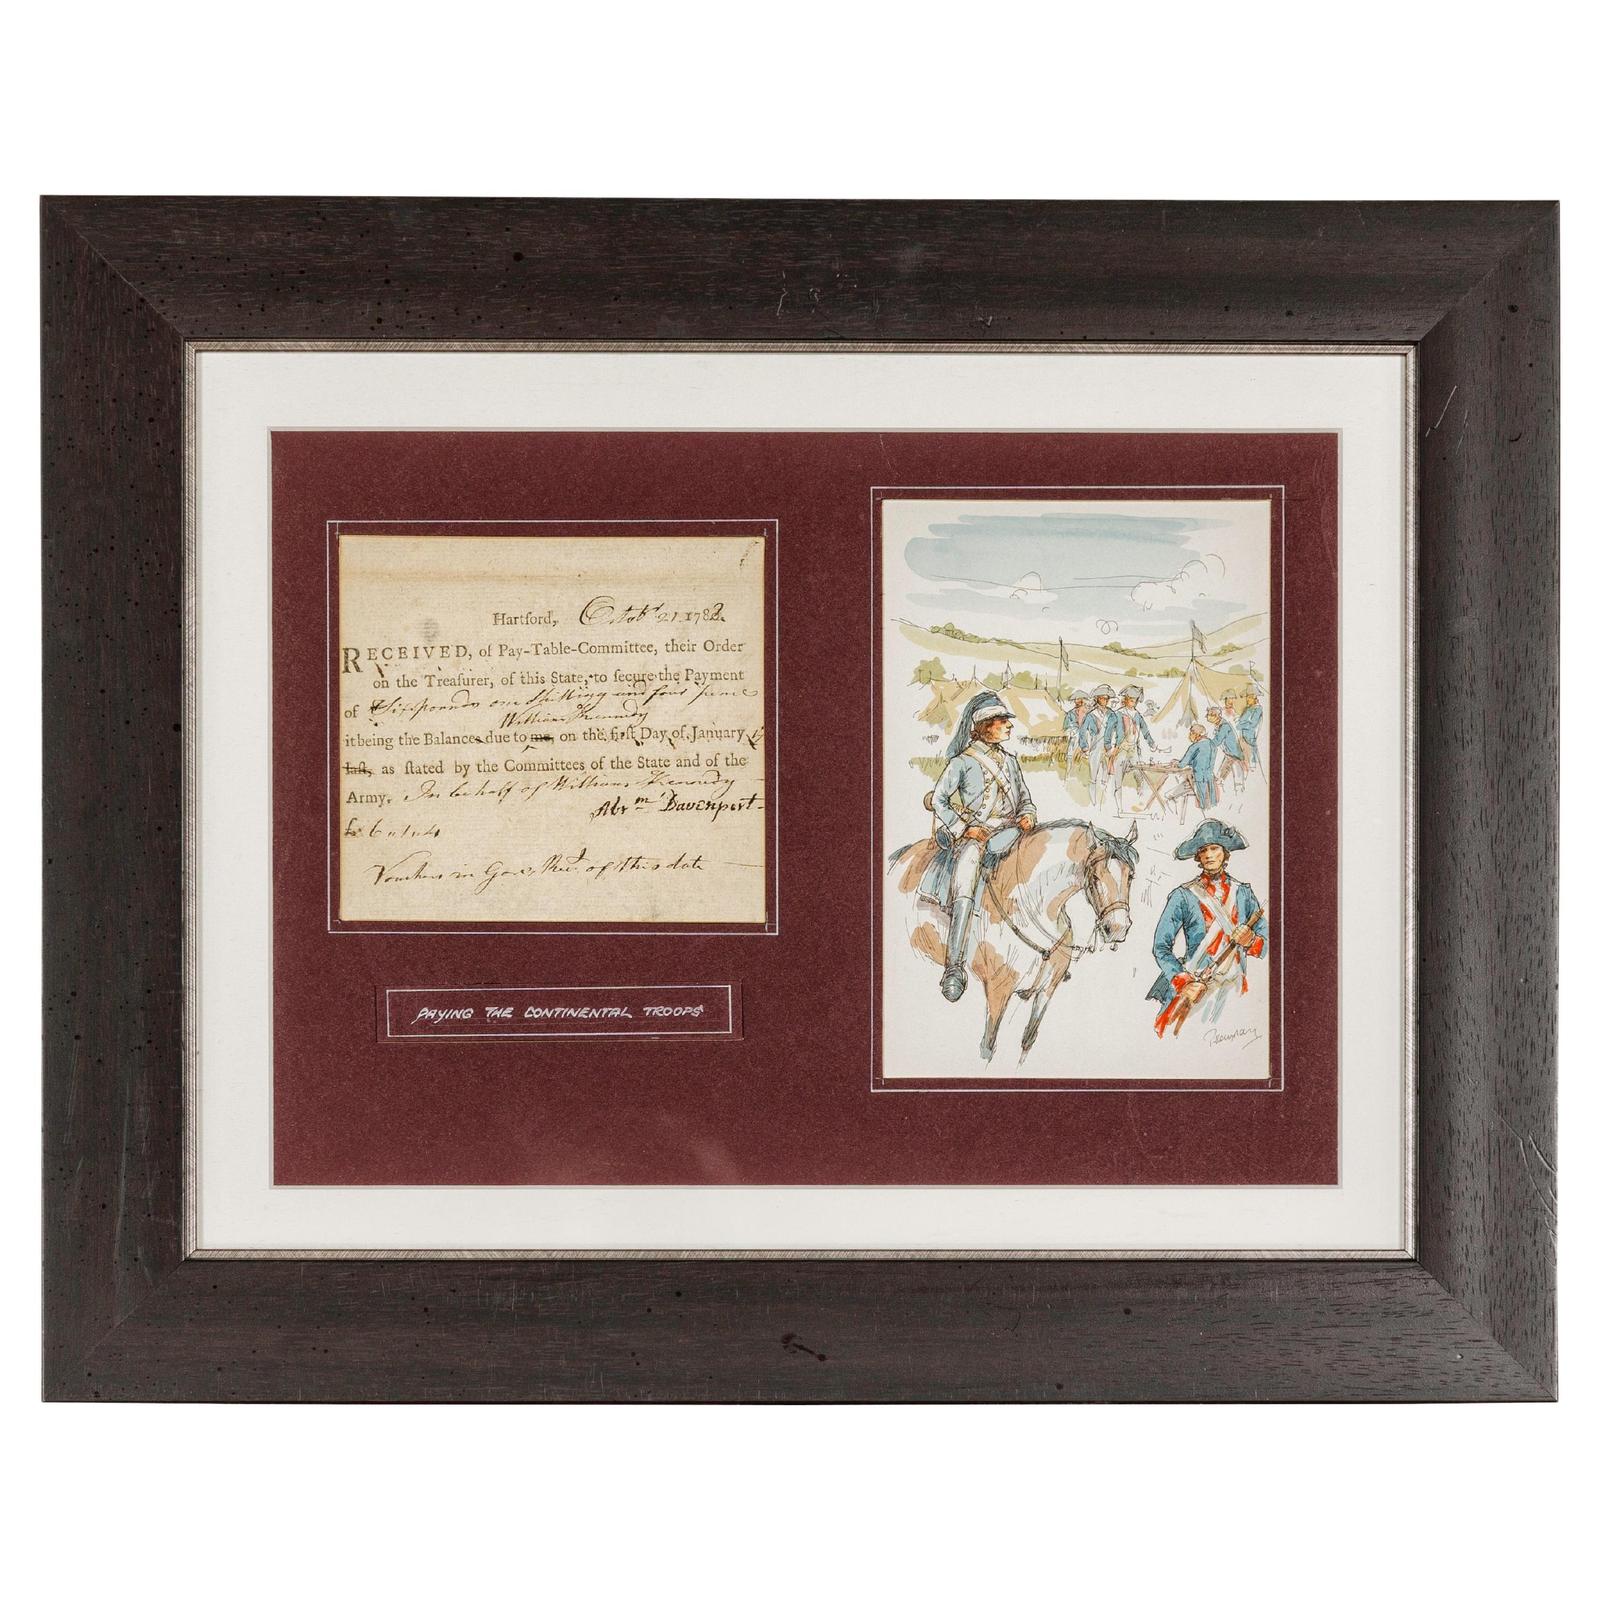 Hartford, Octobr 21 1782.
RECEIVED, of Pay-Table-Committee, their Order
on the Treasurer, of this State, to secure the Payment
of Six pounds one shilling and four pence
William Kennedy
it being the Balances due to me, on the first Day of January
last, as stated by the Committees of the State and of the
Army. In behalf of William Kennedy
Abrm Davenport
£6 " 1 " 4
Vouchers in Gov. of this date
PAYING THE CONTINENTAL TROOPS